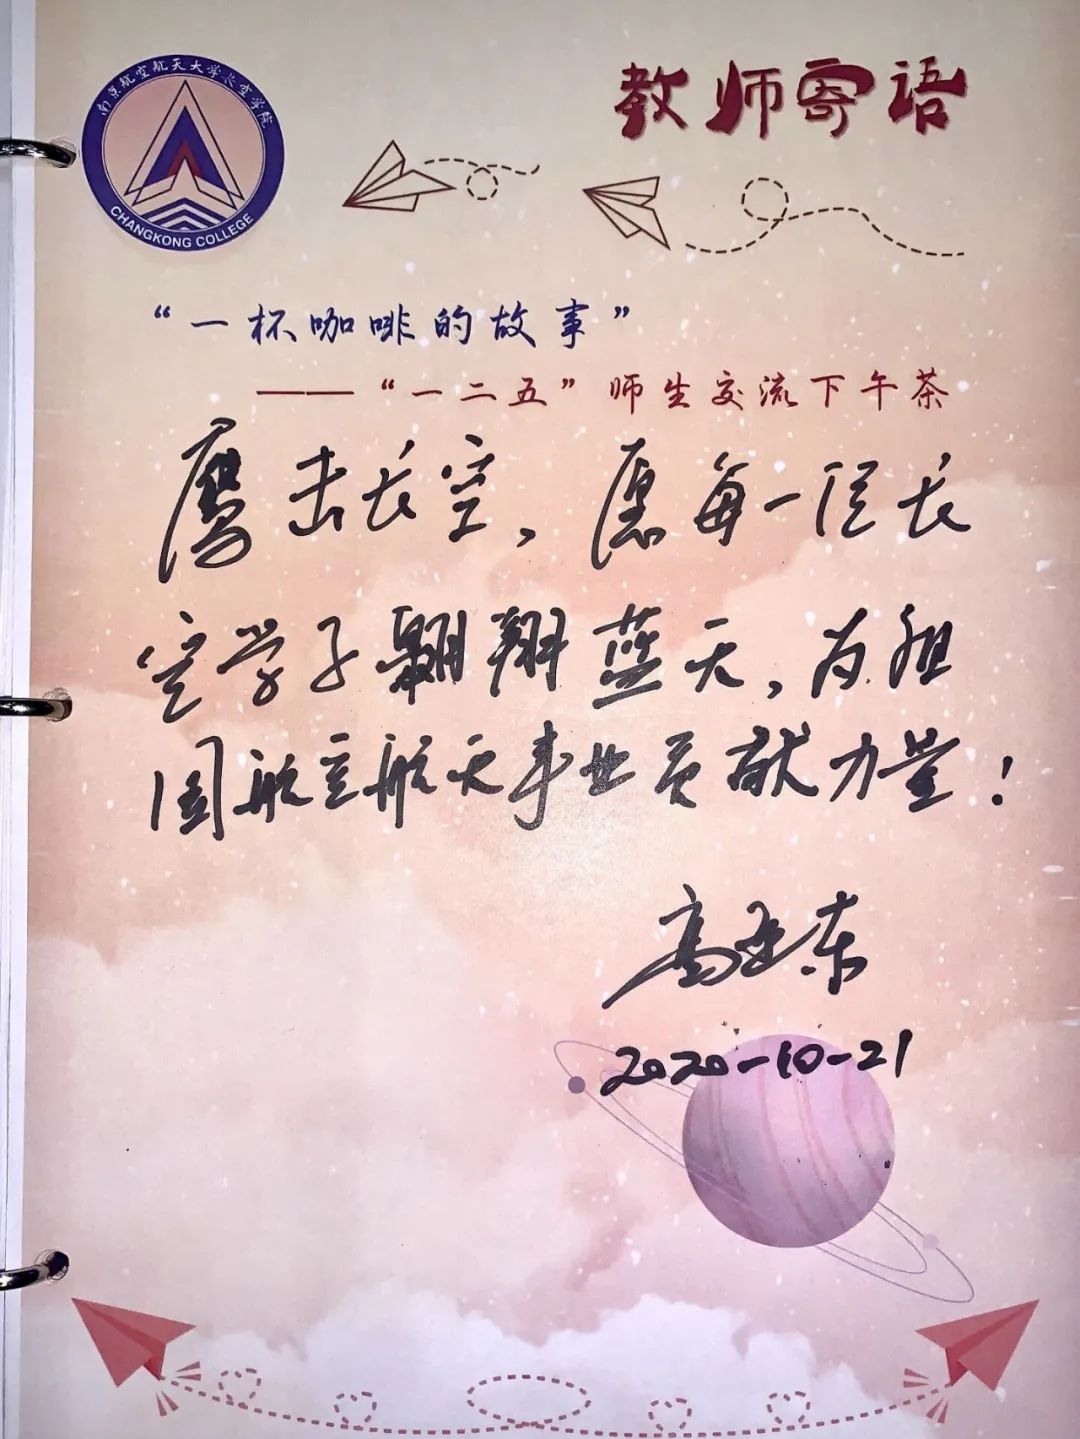 南京航空航天大学长空学院
CHANGKONG COLLEGE
教师寄语
“一杯咖啡的故事”
——“一二五”师生交流下午茶
鹰击长空，愿每一位长
空学子翱翔蓝天，为祖
国航空航天事业贡献力量！
高亚东
2020-10-21